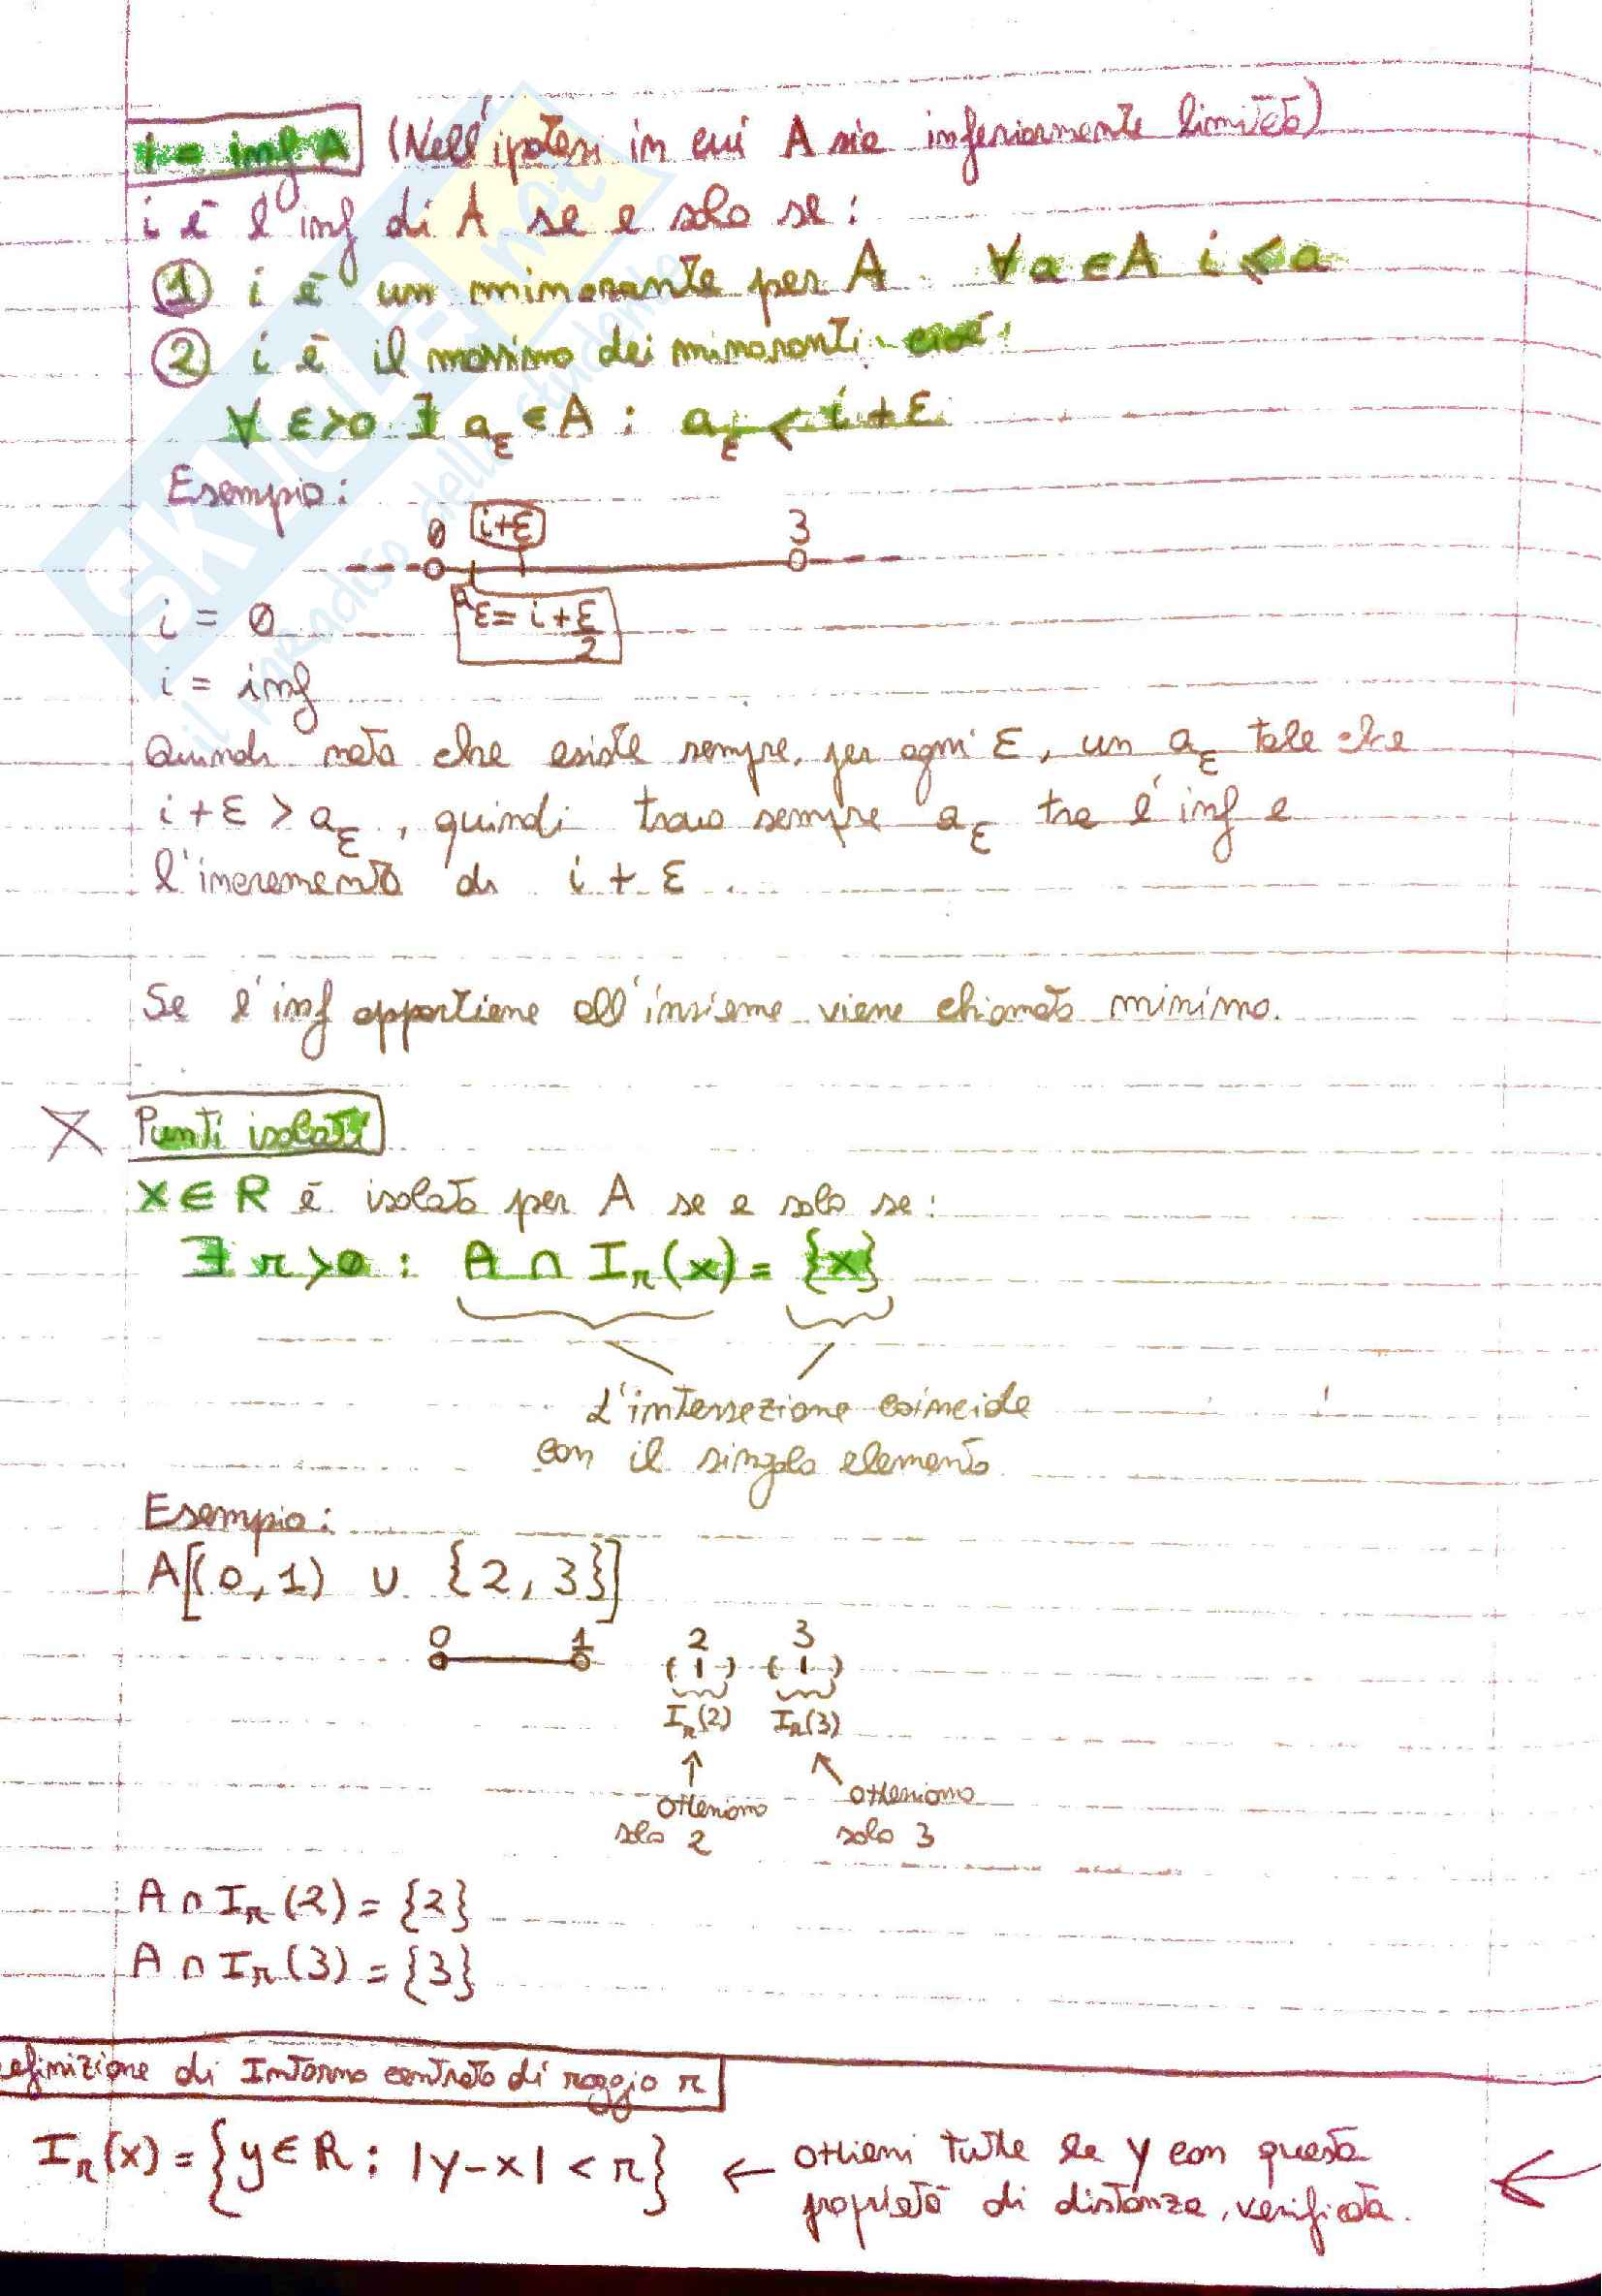 i = inf A (Nell'ipotesi in cui A sia inferiormente limitato)
i è l'inf di A se e solo se:
① i è un minorante per A ∀a∈A i≤a
② i è il massimo dei minoranti cioè:
∀ ε>0 ∃ aε∈A : aε < i+ε
Esempio:
0 i+ε 3
aε = i + ε/2
i = 0
i = inf
Quindi nota che esiste sempre, per ogni ε, un aε tale che
i + ε > aε, quindi trovo sempre aε tra l'inf e
l'incremento di i + ε
Se l'inf appartiene all'insieme viene chiamato minimo.
Punti isolati
x∈R è isolato per A se e solo se:
∃ r>0 : A ∩ Ir(x) = {x}
L'intersezione coincide
con il singolo elemento
Esempio:
A[(0,1) ∪ {2,3}]
0 1 2 3
( ) ( )
Ir(2) Ir(3)
Otteniamo Otteniamo
solo 2 solo 3
A ∩ Ir(2) = {2}
A ∩ Ir(3) = {3}
efinizione di Intorno centrato di raggio r
Ir(x) = {y∈R : |y-x| < r} ← Ottieni tutte le y con questa
proprietà di distanza, verificata.
SKUOLA.net
il paradiso dello studente